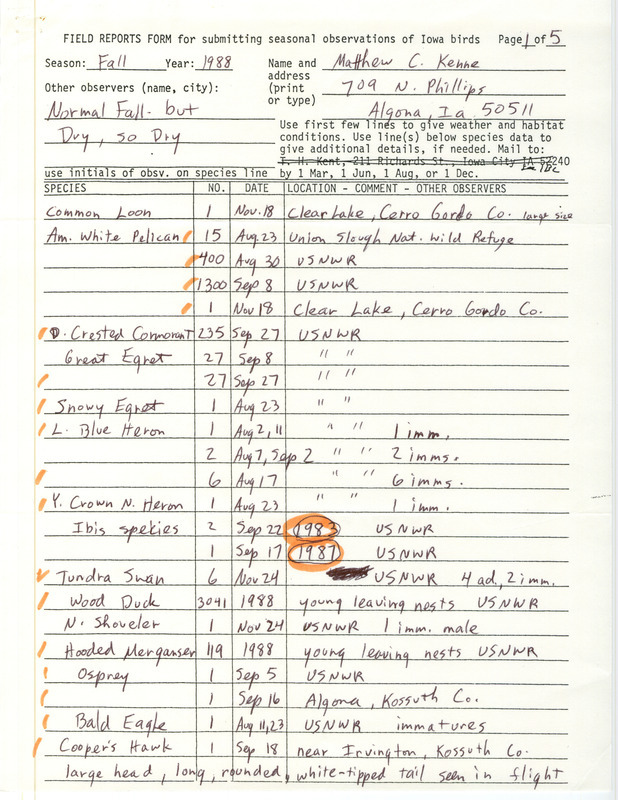 FIELD REPORTS FORM for submitting seasonal observations of Iowa birds Page 1 of 5
Season: Fall Year: 1988 Name and address (print or type) Matthew C. Kenne
709 N. Phillips
Algona, Ia 50511
Other observers (name, city):
Normal Fall but
Dry, so Dry
Use first few lines to give weather and habitat
conditions. Use line(s) below species data to
give additional details, if needed. Mail to:
T. H. Kent, 211 Richards St., Iowa City IA 52240
use initials of obsv. on species line by 1 Mar, 1 Jun, 1 Aug, or 1 Dec.
SPECIES NO. DATE LOCATION - COMMENT - OTHER OBSERVERS
Common Loon 1 Nov. 18 Clear Lake, Cerro Gordo Co. large size
Am. White Pelican 15 Aug 23 Union Slough Nat. Wild Refuge
400 Aug 30 USNWR
1300 Sep 8 USNWR
1 Nov 18 Clear Lake, Cerro Gordo Co.
D. Crested Cormorant 235 Sep 27 USNWR
Great Egret 27 Sep 8 " "
27 Sep 27 " "
Snowy Egret 1 Aug 23 " "
L. Blue Heron 1 Aug 2, 11 " " 1 imm.
2 Aug 7, Sep 2 " " 2 imms.
6 Aug 17 " " 6 imms.
Y. Crown N. Heron 1 Aug 23 " " 1 imm.
Ibis spekies 2 Sep 22 1983 USNWR
1 Sep 17 1987 USNWR
Tundra Swan 6 Nov 24 USNWR 4 ad, 2 imm.
Wood Duck 3041 1988 young leaving nests USNWR
N. Shoveler 1 Nov 24 USNWR 1 imm. male
Hooded Merganser 119 1988 young leaving nests USNWR
Osprey 1 Sep 5 USNWR
1 Sep 16 Algona, Kossuth Co.
Bald Eagle 1 Aug 11, 23 USNWR immatures
Cooper's Hawk 1 Sep 18 near Irvington, Kossuth Co.
large head, long, rounded, white-tipped tail seen in flight